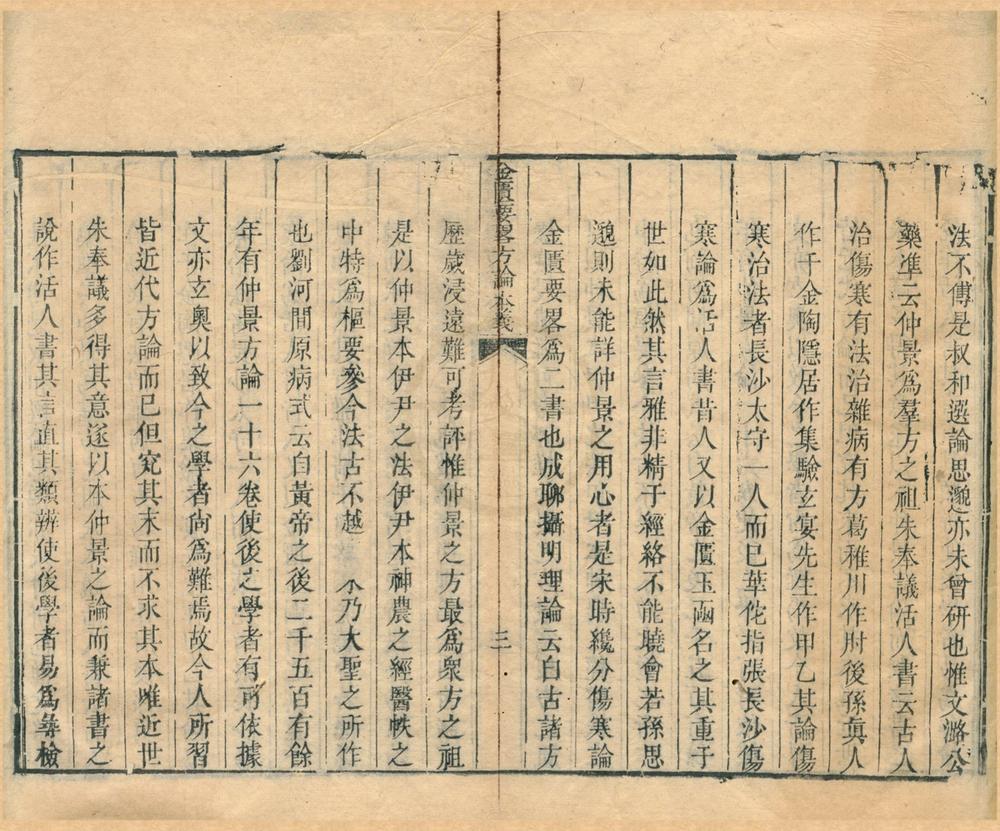 法不傳是叔和選論思邈亦未曾硏也惟文潞公
藥凖云仲景爲羣方之祖朱奉議活人書云古人
治傷寒有法治雜病有方葛稚川作肘後孫眞人
作千金陶隱居作集驗玄宴先生作甲乙其論傷
寒治法者長沙太守一人而已華佗指張長沙傷
寒論爲活人書昔人又以金匱玉函名之其重于
世如此然其言雅非精于經絡不能曉會若孫思
邈則未能詳仲景之用心者是宋時纔分傷寒論
金匱要畧爲二書也成聊攝明理論云自古諸方
金匱要畧方論本義
三
歷歲浸遠難可考評惟仲景之方最爲衆方之祖
是以仲景本伊尹之法伊尹本神農之經醫帙之
中特爲樞要參今法古不越
乃大聖之所作
也劉河間原病式云自黃帝之後二千五百有餘
年有仲景方論一十六卷使後之學者有可依據
文亦玄奧以致今之學者尙爲難焉故今人所習
皆近代方論而已但究其末而不求其本唯近世
朱奉議多得其意遂以本仲景之論而兼諸書之
說作活人書其言直其類辨使後學者易爲尋檢